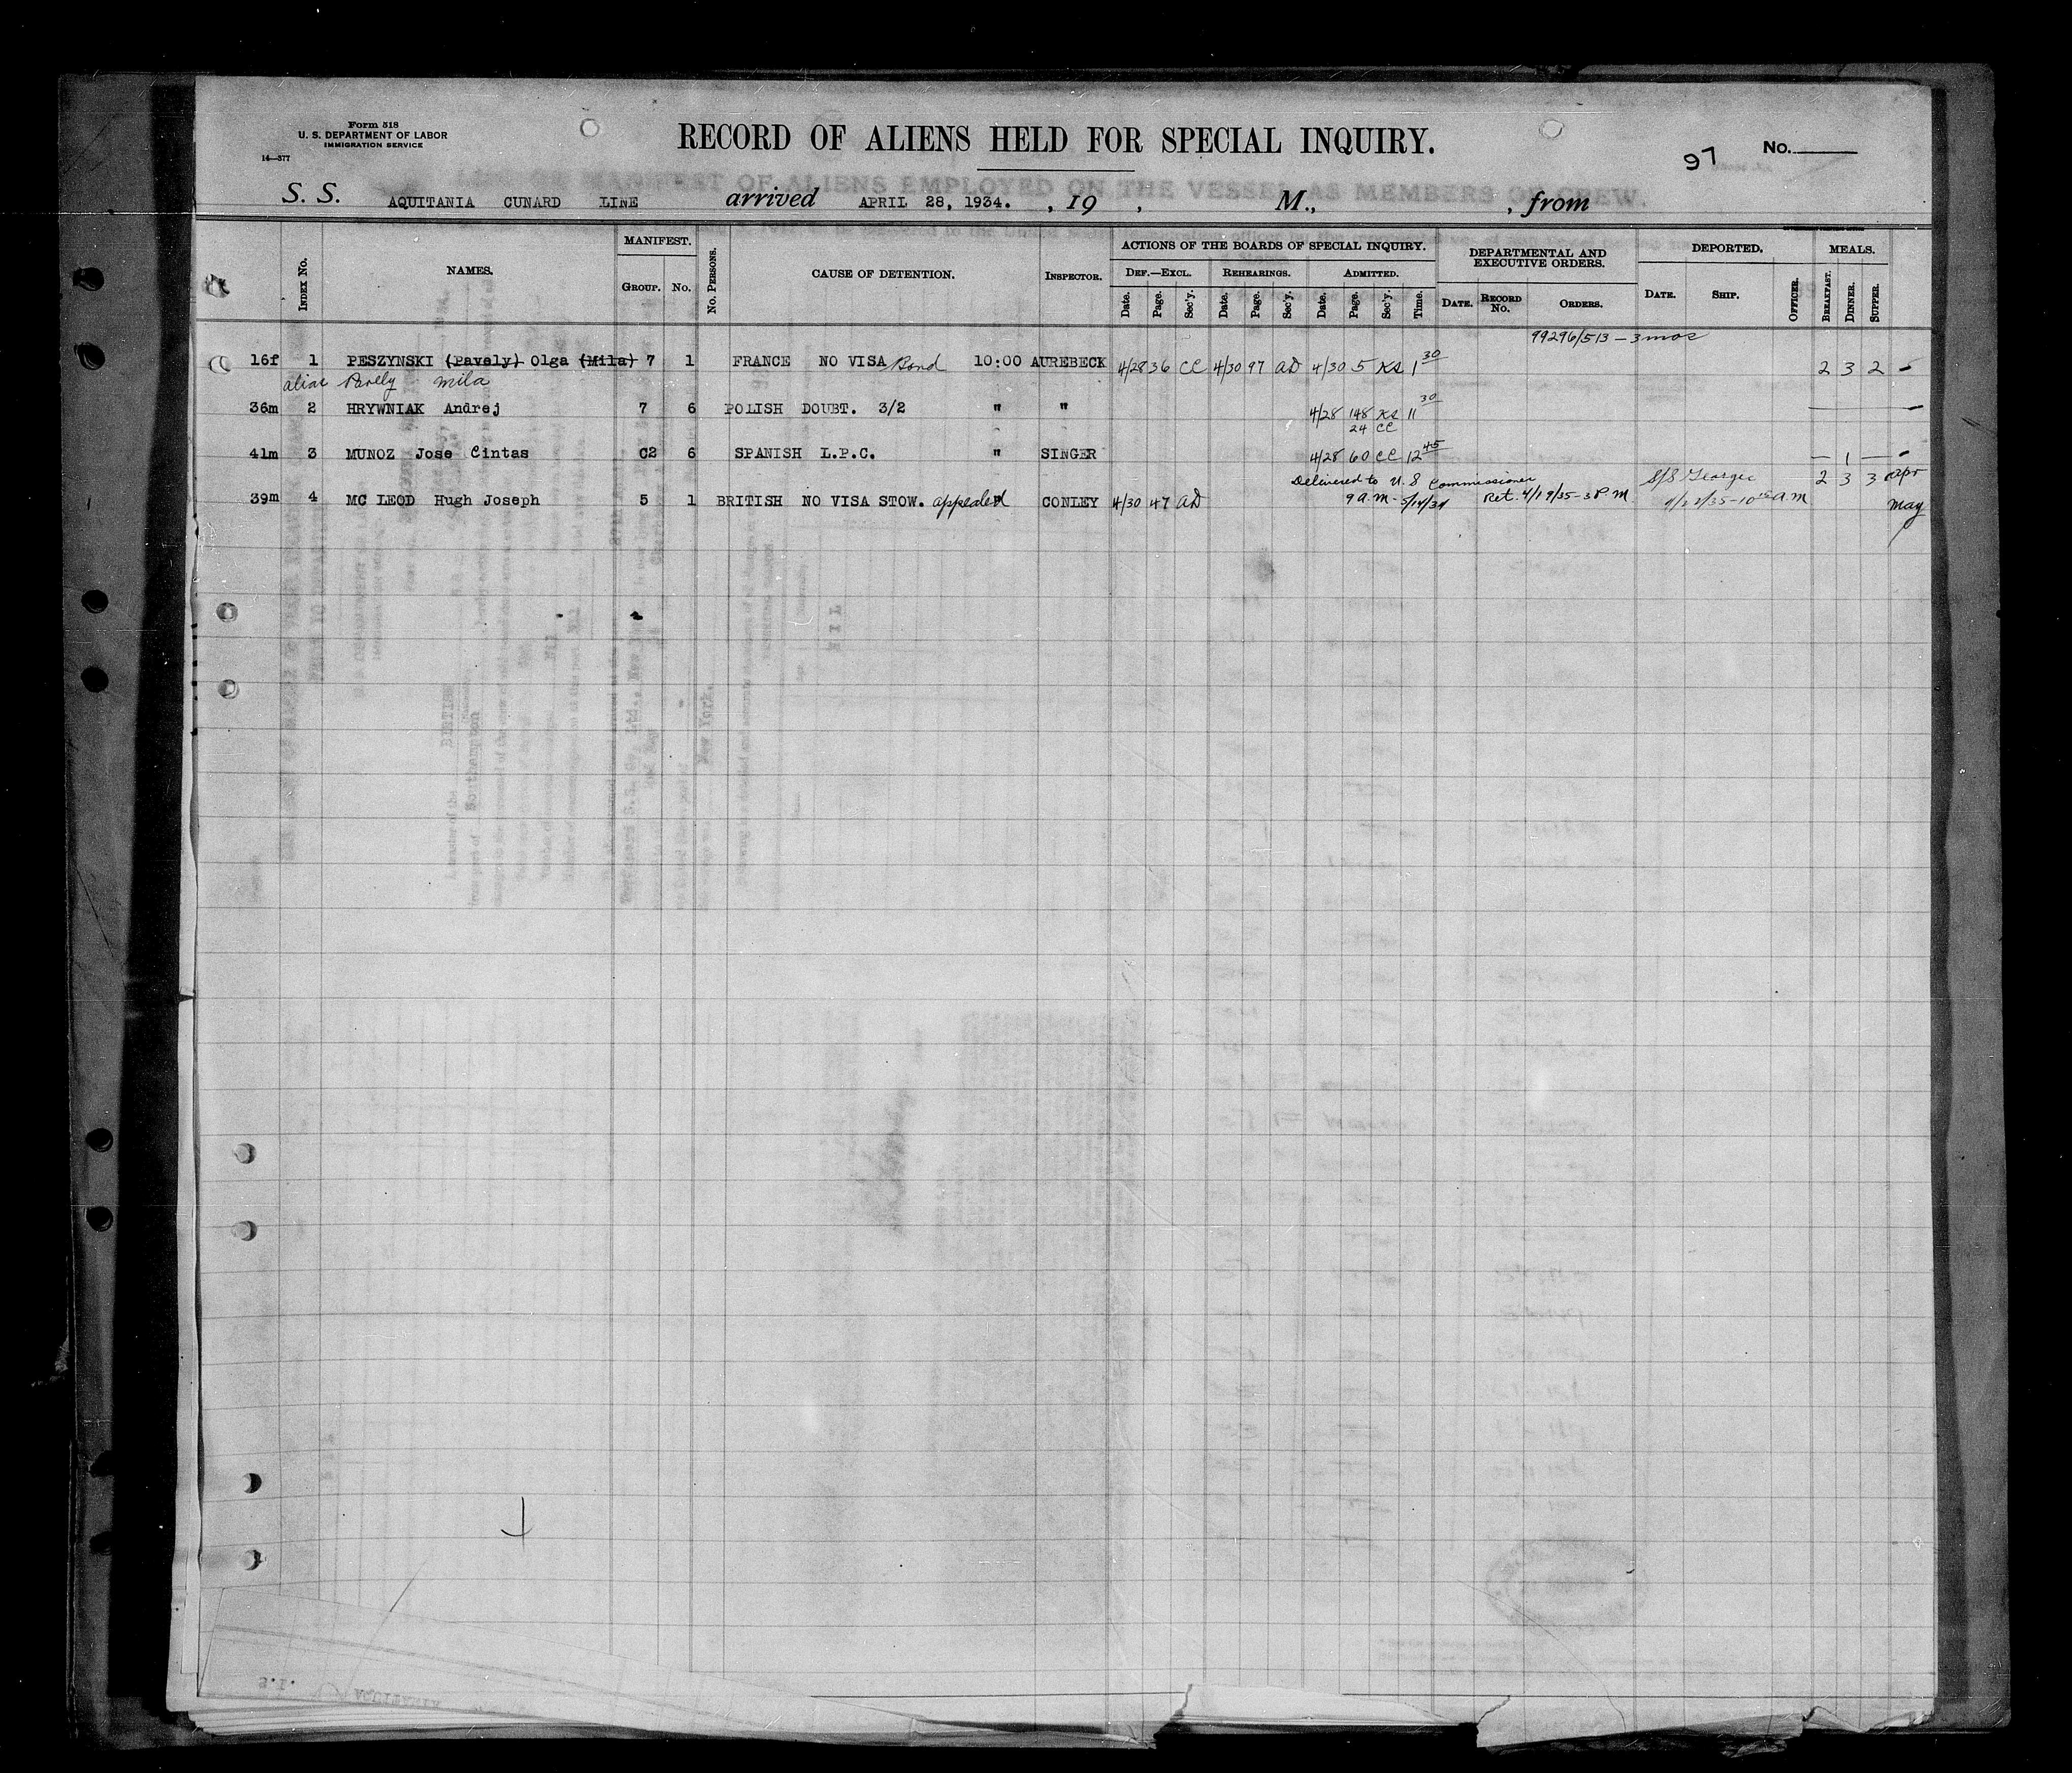 Form 518
U. S. DEPARTMENT OF LABOR
IMMIGRATION SERVICE
14—377
RECORD OF ALIENS HELD FOR SPECIAL INQUIRY.
97 No.
S. S. AQUITANIA CUNARD LINE arrived APRIL 28, 1934. , 19 , M., , from
INDEX No. NAMES. MANIFEST. GROUP. No. No. PERSONS. CAUSE OF DETENTION. INSPECTOR. ACTIONS OF THE BOARDS OF SPECIAL INQUIRY. DEPARTMENTAL AND EXECUTIVE ORDERS. DEPORTED. MEALS.
DEF.—EXCL. REHEARINGS. ADMITTED.
Date. Page. Sec'y. Date. Page. Sec'y. Date. Page. Sec'y. Time. DATE. RECORD No. ORDERS. DATE. SHIP. OFFICER. BREAKFAST. DINNER. SUPPER.
99296/513 – 3 mos
16f 1 PESZYNSKI (Pavely) Olga (Mila) 7 1 FRANCE NO VISA Bond 10:00 AUREBECK 4/28 36 CC 4/30 97 AD 4/30 5 KS 1 30 2 3 2 -
alias Pavely Mila
36m 2 HRYWNIAK Andrej 7 6 POLISH DOUBT. 3/2 " " 4/28 148 KS 11 30
24 CC
41m 3 MUNOZ Jose Cintas C2 6 SPANISH L.P.C. " SINGER 4/28 60 CC 12 45 — 1 — -
Delivered to U. S Commissioner S/S Georgic 2 3 3 Apr
39m 4 MC LEOD Hugh Joseph 5 1 BRITISH NO VISA STOW. appealed " CONLEY 4/30 47 AD 9 A.M - 5/14/34 Ret. 4/19/35 - 3 P.M A.M
May
S.I. AQUITANIA